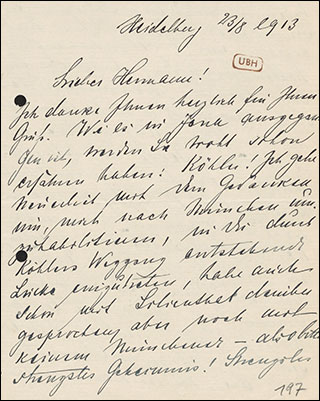 Heidelberg 23/8 1913
UBH
Lieber Hermann!
Ich danke Ihnen herzlich für Ihren
Gruß. Wie es in Jena ausgegan
gen ist, werden Sie wohl schon
erfahren haben: Köhler! Ich gehe
neuerdt mit dem Gedanken
um, mich nach München um-
zuhabilitieren, in die durch
Köhlers Weggang entstehende
Lücke einzutreten, habe auch
schon mit Lilienthal darüber
gesprochen, aber noch mit
keinem Münchener – also bitte
strengstes Geheimnis! Strengstes
197